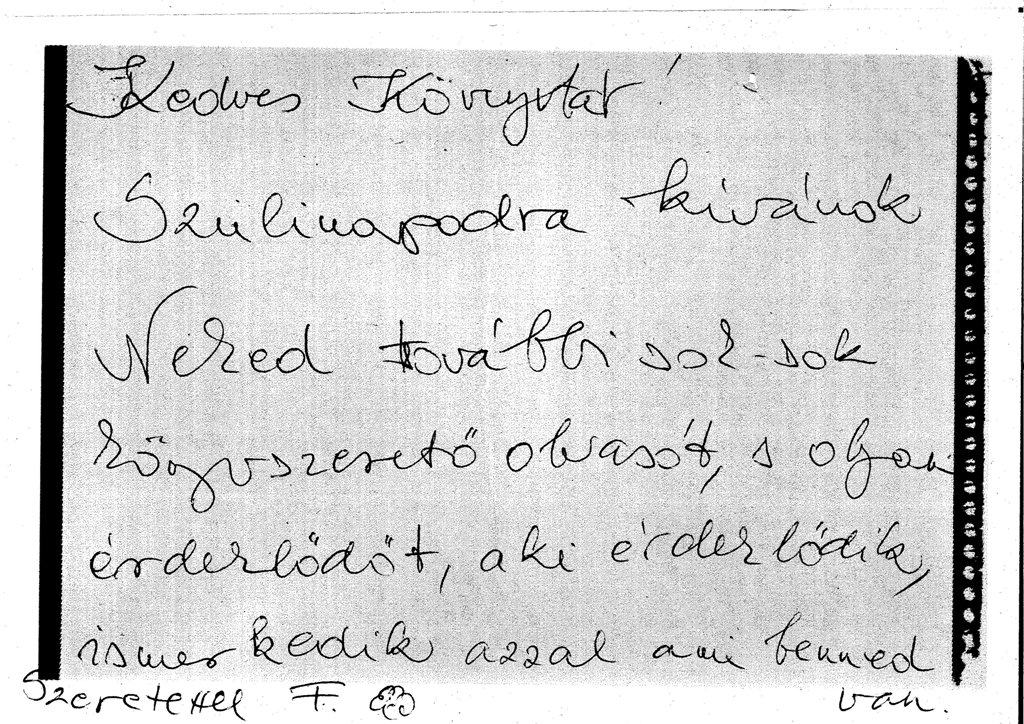 Kedves Könyvtár!
Szülinapodra kívánok
Neked további sok-sok
könyvszerető olvasót, s olyan
érdeklődőt, aki érdeklődik,
ismerkedik azzal ami benned
van.
Szeretettel F.